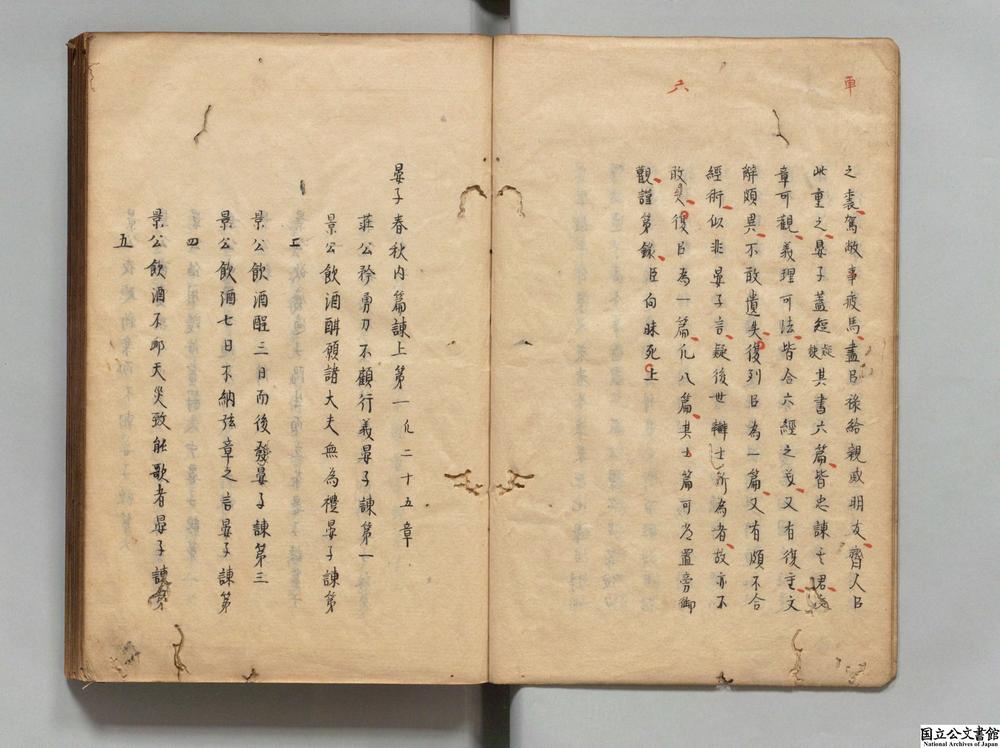 車
六
之裘駕敝車疲馬盡以祿給親戚朋友齊人以
此重之晏子蓋短其書六篇皆忠諫其君文
章可觀義理可法皆合六經之義又有復重文
辭頗異不敢遺失復列以為一篇又有頗不合
經術似非晏子言疑後世辯士所為者故亦不
敢失復以為一篇凡八篇其六篇可常置旁御
觀謹第錄臣向昧死上
晏子春秋内篇諫上第一凡二十五章
莊公矜勇力不顧行義晏子諫第一
景公飲酒酣願諸大夫無為禮晏子諫第
二
景公飲酒酲三日而後發晏子諫第三
景公飲酒七日不納弦章之言晏子諫第
四
景公飲酒不恤天災致能歌者晏子諫第
五
国立公文書館
National Archives of Japan